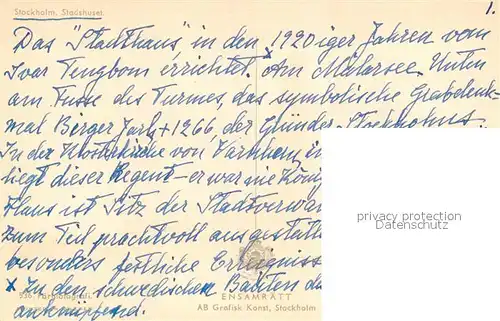 Stockholm. Stadshuset. 1.
Das "Stadthaus", in den 1920iger Jahren vom
Ivar Tengbom errichtet. Am Mälarsee. Unten
am Fusse des Turmes, das symbolische Grabdenk-
mal Birger Jarls +1266, der Gründer Stockholms.
In der Klosterkirche von Varnhem in
liegt dieser Regent - er war nie König
Haus ist Sitz der Stadtverwal
privacy protection
Datenschutz
zum Teil prachtvoll ausgestatt
besonders festliche Ereigniss
x Zu den schwedischen Bauten
ENSAMRÄTT
anknüpfend.
AB Grafisk Konst, Stockholm